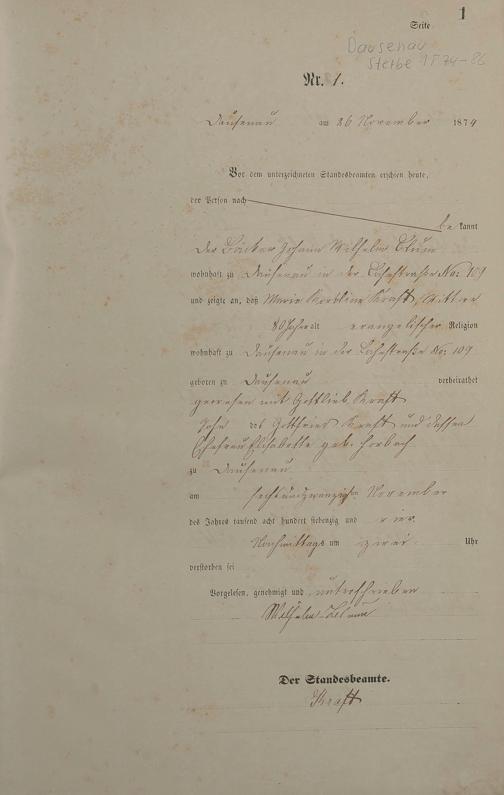 1
Seite
Dausenau
Sterbe 1874-86
Nr. 1.
Dausenau am 26 November 1874
Vor dem unterzeichneten Standesbeamten erschien heute,
der Person nach
be kannt
der Bäcker Johann Wilhelm
wohnhaft zu Dausenau in der Lahnstraße No: 109
und zeigte an, daß Marie Karoline Kraft, Witwe
80 Jahre alt evangelischer Religion
wohnhaft zu Dausenau in der Lahnstraße No: 109
geboren zu Dausenau verheirathet
gewesen mit Gottlieb Kraft
Sohn des Gottfried Kraft und dessen
Ehefrau Elisabetha geb. Horbach
zu Dausenau
am sechsundzwanzigsten November
des Jahres tausend acht hundert siebenzig und vier
Nachmittags um zwei Uhr
verstorben sei
Vorgelesen, genehmigt und unterschrieben
Wilhelm
Der Standesbeamte.
Kraft